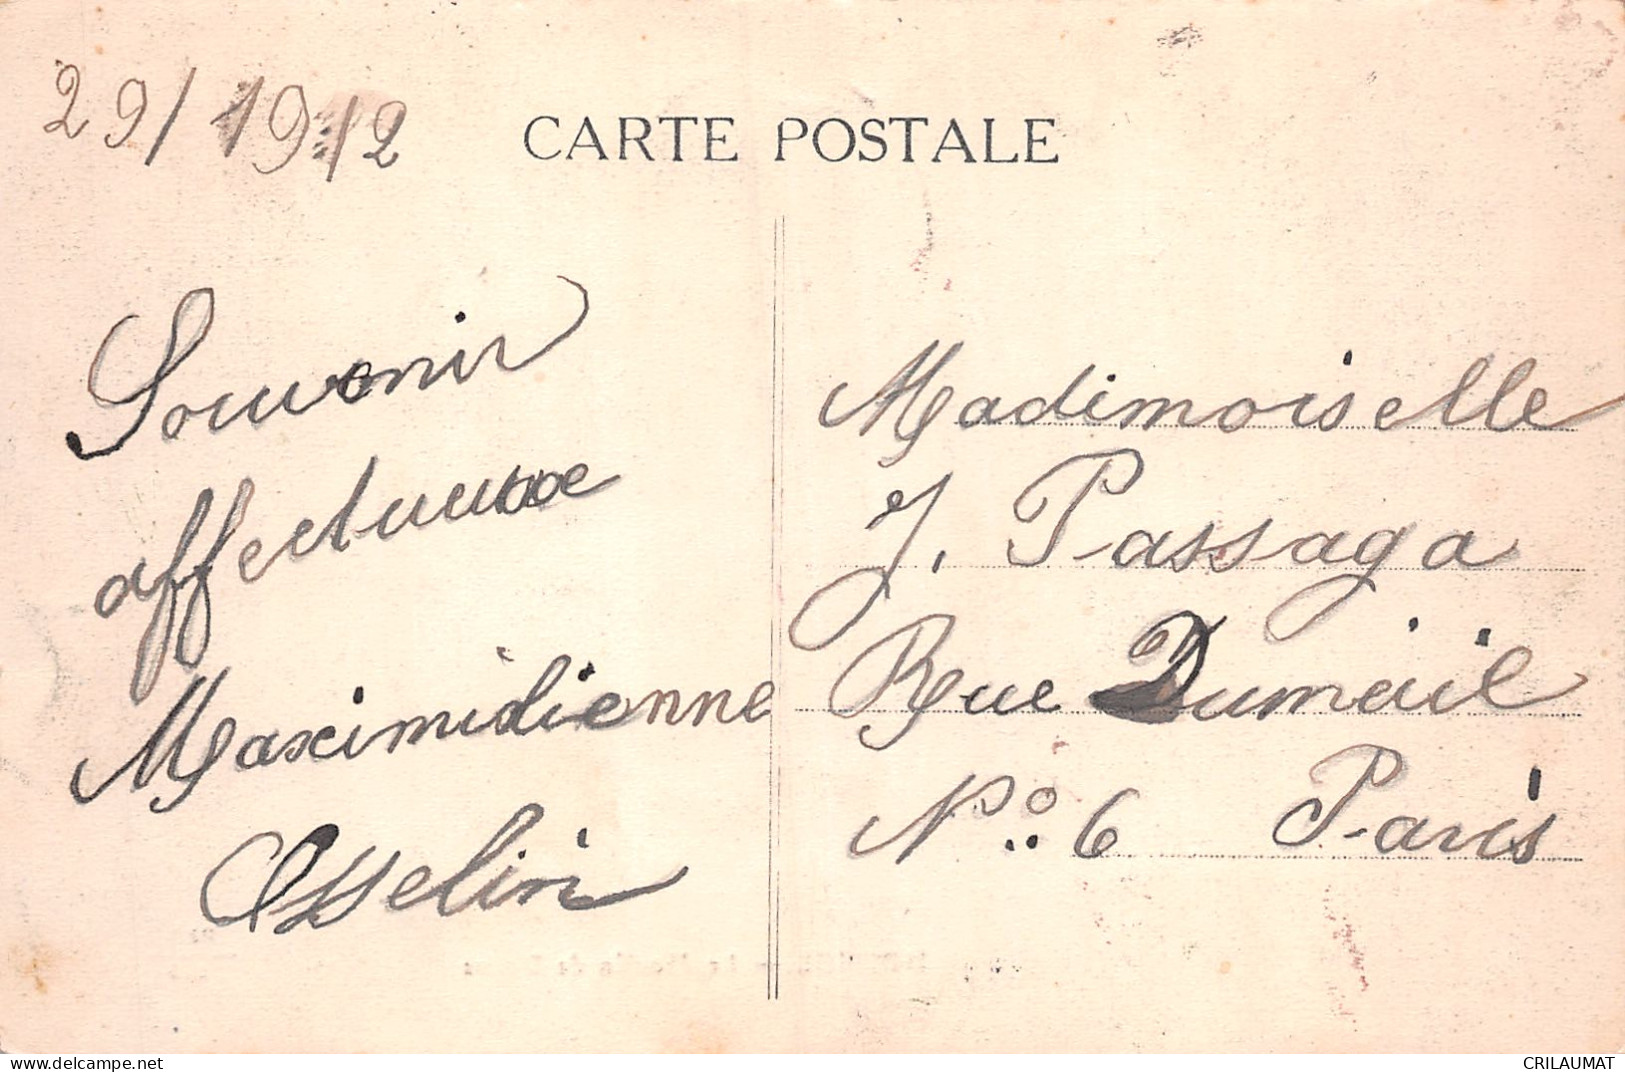 29/1912
CARTE POSTALE
Souvenir
affectueuse
Maximidienne
Asselin
Madimoiselle
J. Passaga
Rue Duméil
No. 6 Paris
delcampe.net
CRILAUMAT